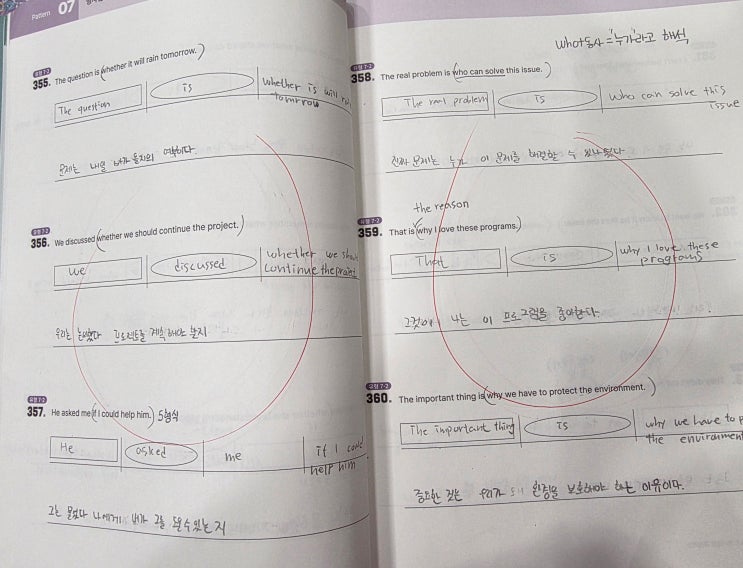 Pattern 07
유형 7-2
355. The question is (whether it will rain tomorrow.)
The question
is
whether is will
tomrrow
문제는 내일 비가 올지의 여부이다.
유형 7-2
356. We discussed (whether we should continue the project.)
we
discussed
whether we
continue the project
우리는 논의했다 프로젝트를 계속 해야 할지
유형 7-2
357. He asked me (if I could help him.) 5형식
He
asked
me
if I could
help him
그는 물었다 나에게 내가 그를 도울수있는지
who+동사 = '누가'라고 해석
유형 7-2
358. The real problem is (who can solve this issue.)
The real problem
is
who can solve this
issue
진짜 문제는 누가 이 문제를 해결할 수
the reason
유형 7-2
359. That is (why I love these programs.)
That
is
why I love these
programs
나는 이 프로그램을 좋아한다.
유형 7-2
360. The important thing is (why we have to protect the environment.)
The important thing
is
why we have to
the environment
중요한 것은 우리가 왜 환경을 보호해야 하는 이유이다.